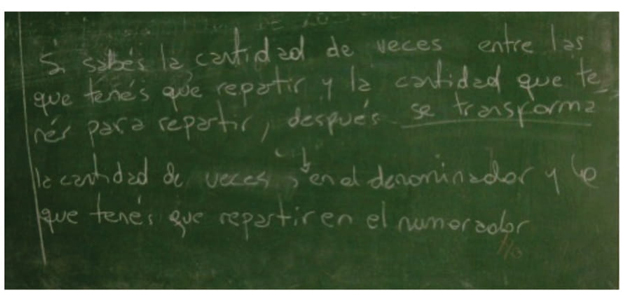 Si sabés la cantidad de veces entre las
que tenés que repartir y la cantidad que te_
nés para repartir, después se transforma
la cantidad de veces en el denominador y lo
que tenés que repartir en el numerador